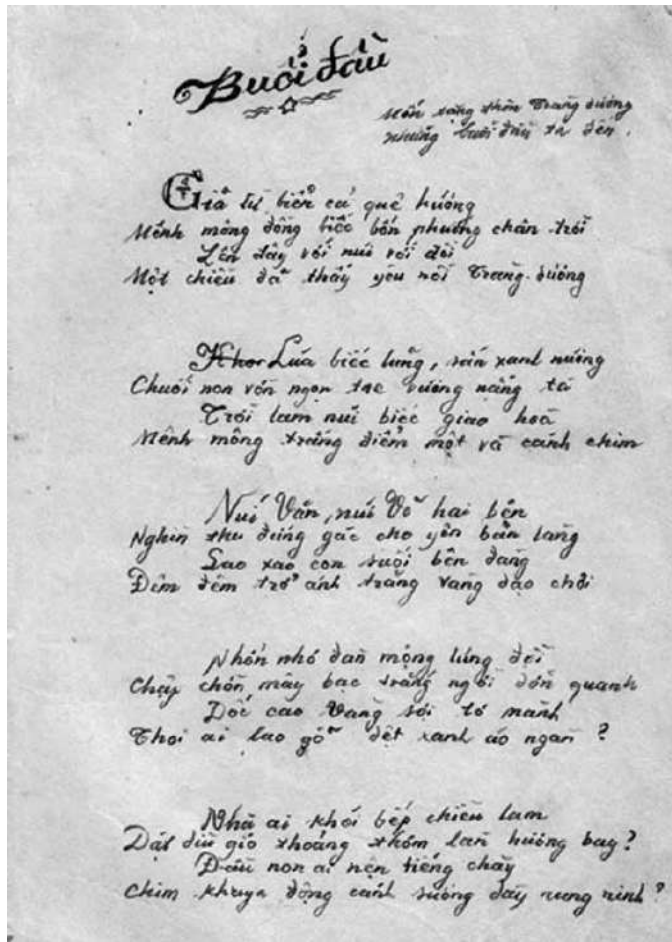 Buổi đầu
Mến tặng thôn Tràng dương
những buổi đầu ta đến.
Giã từ biển cả quê hương
Mênh mông đồng biếc bốn phương chân trời
Lên đây với núi với đồi
Một chiều đã thấy yêu nơi Tràng-dương
Khor Lúa biếc lưng, sắn xanh nương
Chuối non vờn ngọn tre vương nắng tà
Trời lam núi biếc giao hoà
Mênh mông trắng điểm một và cánh chim
Núi Văn, núi Võ hai bên
Nghìn thu đứng gác cho yên bản làng
Lao xao con suối bên đàng
Đêm đêm trở ánh trăng vàng dạo chơi
Nhởn nhơ đàn mộng lưng đồi
Chạy chốn mây bạc trắng ngời đón quanh
Dốc cao vàng sợi tơ mành
Thoi ai lao gỗ dệt xanh áo ngàn ?
Nhà ai khói bếp chiều lam
Dặt dìu gió thoảng thơm làn hương bay?
Đầu non ai nện tiếng chày
Chim khuya động cánh sương đầy rung rinh ?